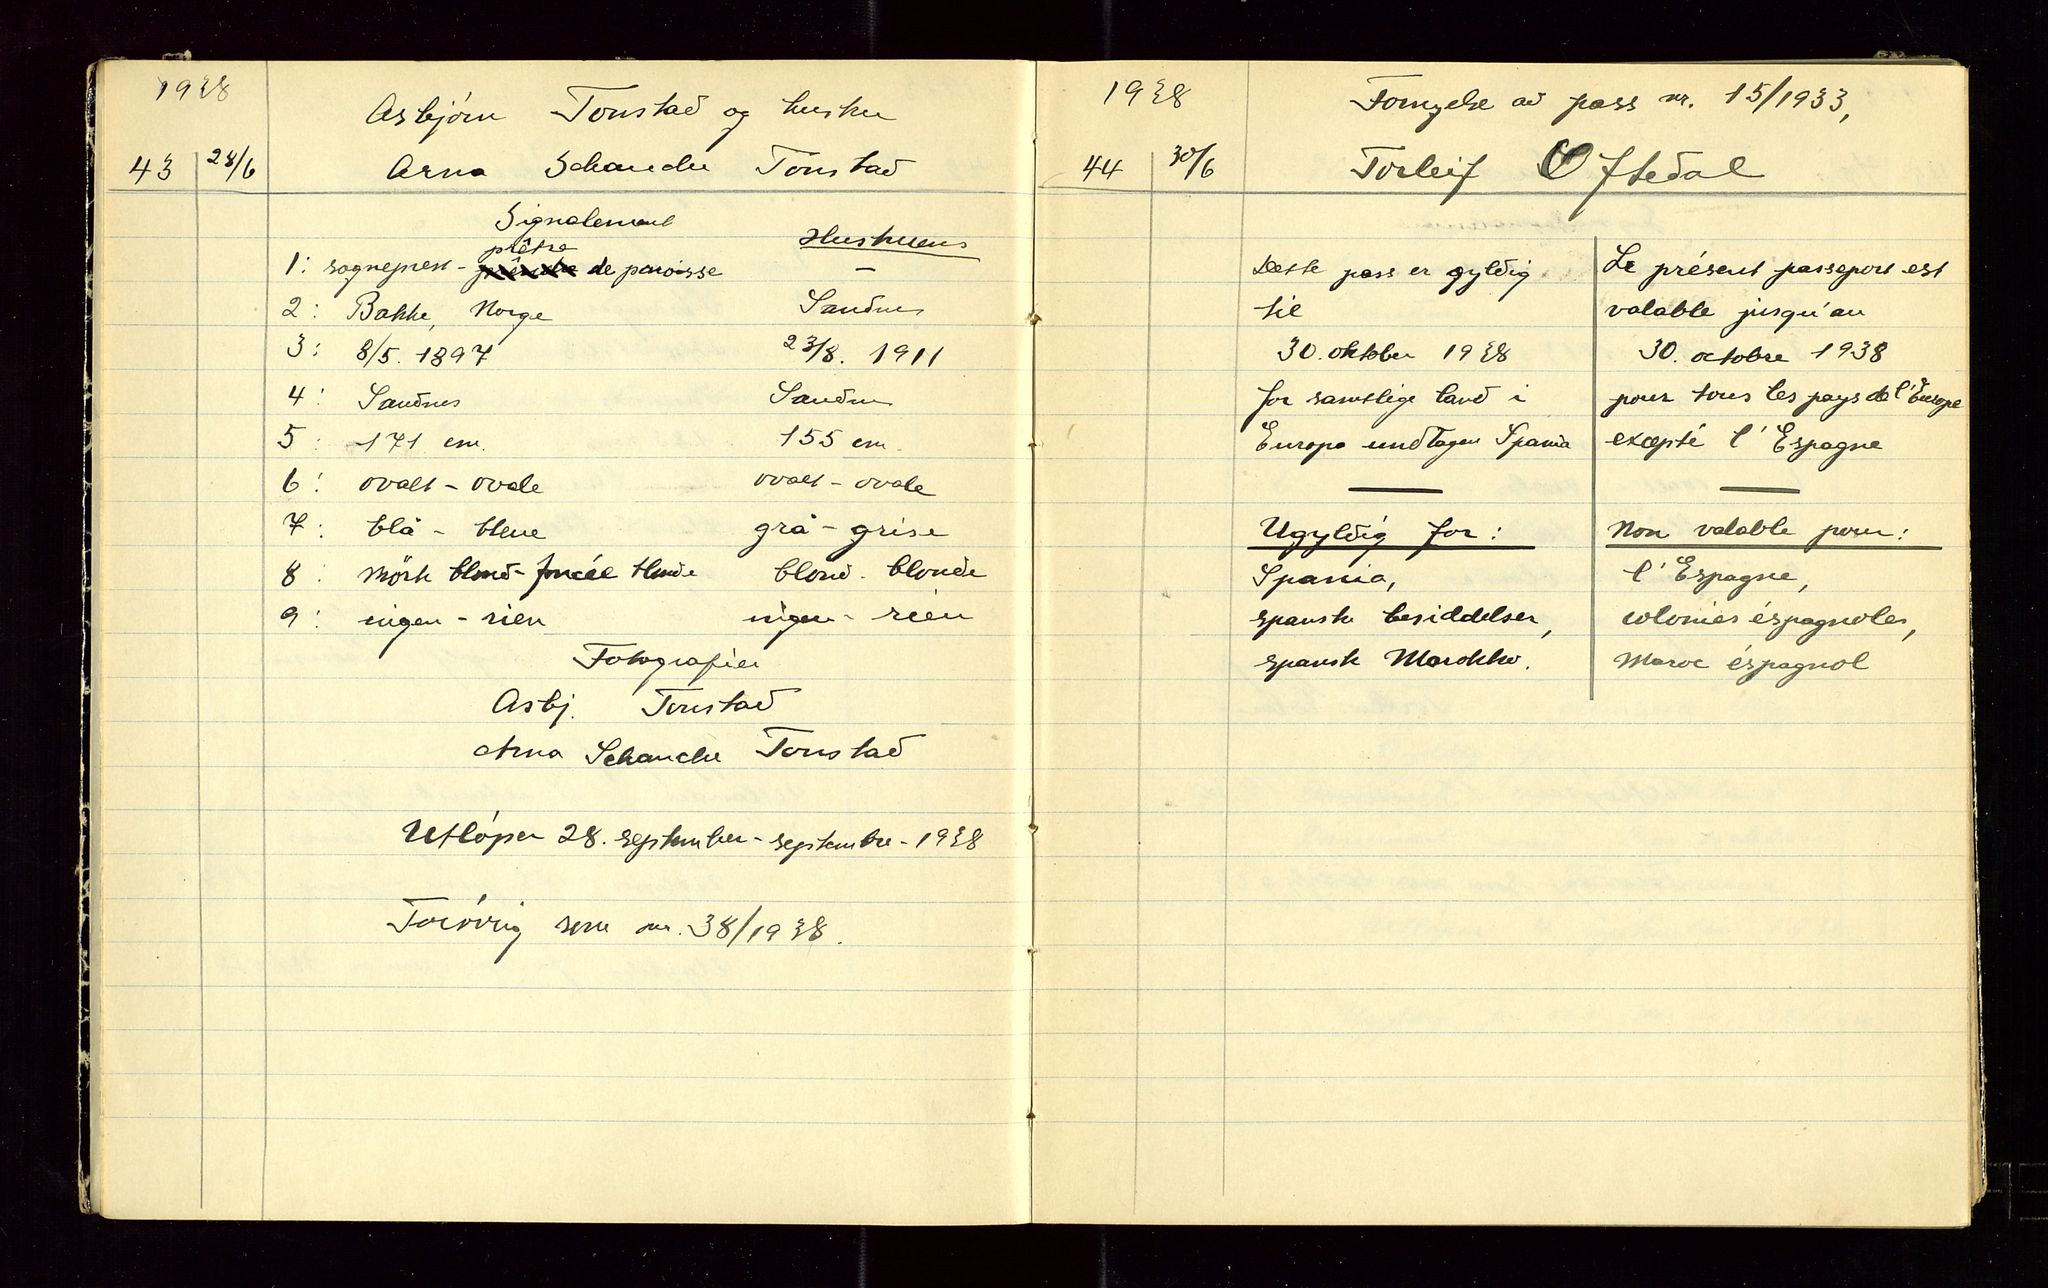 1938
Asbjörn Tonstad og hustru
43 28/6 Arna Schanche Tonstad
Signalement
prêtre Hustruens
1: sogneprest - de paroisse —
2: Bakke, Norge Sandnes
3: 8/5. 1897 23/8. 1911
4: Sandnes Sandnes
5: 171 cm. 155 cm.
6: ovalt - ovale ovalt - ovale
7: blå - bleue grå - grise
8: mörk blond - foncée blonde blond - blonde
9: ingen - rien ingen - rien
Fotografier
Asbj. Tonstad
Arna Schanche Tonstad
Utlöper 28. september - septembre - 1938
Forövrig som nr. 38/1938.
1938 Fornyelse av pass nr. 15/1933,
44 30/6 Torleif Oftedal
Dette pass er gyldig
til
30. oktober 1938
for samtlige land i
Europa undtagen Spania
Ugyldig for:
Spania,
spanske besiddelser,
spansk Marokko.
Le présent passeport est
valable jusqu'au
30. octobre 1938
pour tous les pays de l'Europe
excepté l'Espagne
Non valable pour:
l'Espagne,
colonies éspagnoles,
Maroc éspagnol